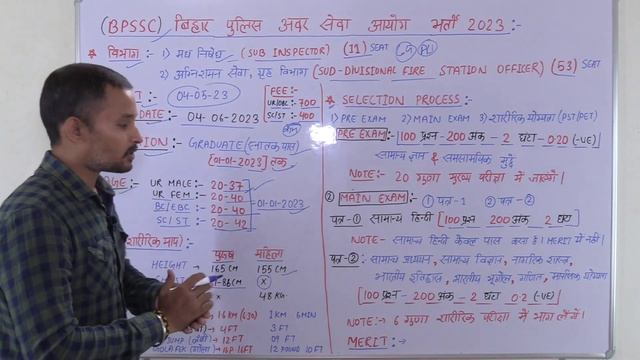 (BPSSC) बिहार पुलिस अवर सेवा आयोग भर्ती 2023:-
* विभाग :- 1) मद्य निषेध (SUB INSPECTOR) (11) SEAT
2) अग्निशमन सेवा, गृह विभाग (SUB-DIVISIONAL FIRE STATION OFFICER) (53) SEAT
:- 04-05-23
FEE:-
UR/OBC :- 700
SC/ST :- 400
DATE :- 04-06-2023
ION :- GRADUATE (स्नातक पास)
[01-01-2023] तक
AGE :-
UR MALE :- 20-37
UR FEM :- 20-40
BC/EBC :- 20-40
SC/ST :- 20-42
01-01-2023
(शारीरिक माप) :-
पुरुष महिला
HEIGHT → 165 CM 155 CM
-86CM (X)
X 48 KG.
1.6 KM (6:30) 1 KM 6 MIN
4 FT 3 FT
JUMP 12 FT 09 FT
16P 16FT 12 POUND 10 FT
* SELECTION PROCESS :-
1) PRE EXAM 2) MAIN EXAM 3) शारीरिक योग्यता (PST/PET)
PRE EXAM :- [100 प्रश्न - 200 अंक - 2 घंटा - 0.20 (-VE)]
सामान्य ज्ञान & समसामयिक मुद्दे
NOTE:- 20 गुणा मुख्य परीक्षा में जाएंगे।
② MAIN EXAM :- ① पत्र-1 ② पत्र-②
पत्र-① सामान्य हिन्दी [100 प्रश्न 200 अंक 2 घंटा]
NOTE - सामान्य हिन्दी केवल पास करना है। MERIT में नहीं।
पत्र-② :- सामान्य अध्ययन, सामान्य विज्ञान, नागरिक शास्त्र,
भारतीय इतिहास, भारतीय भूगोल, गणित, मानसिक योग्यता
[100 प्रश्न - 200 अंक - 2 घंटा 0.2 (-VE)]
NOTE:- 6 गुणा शारीरिक परीक्षा में भाग लेंगे।
MERIT :-